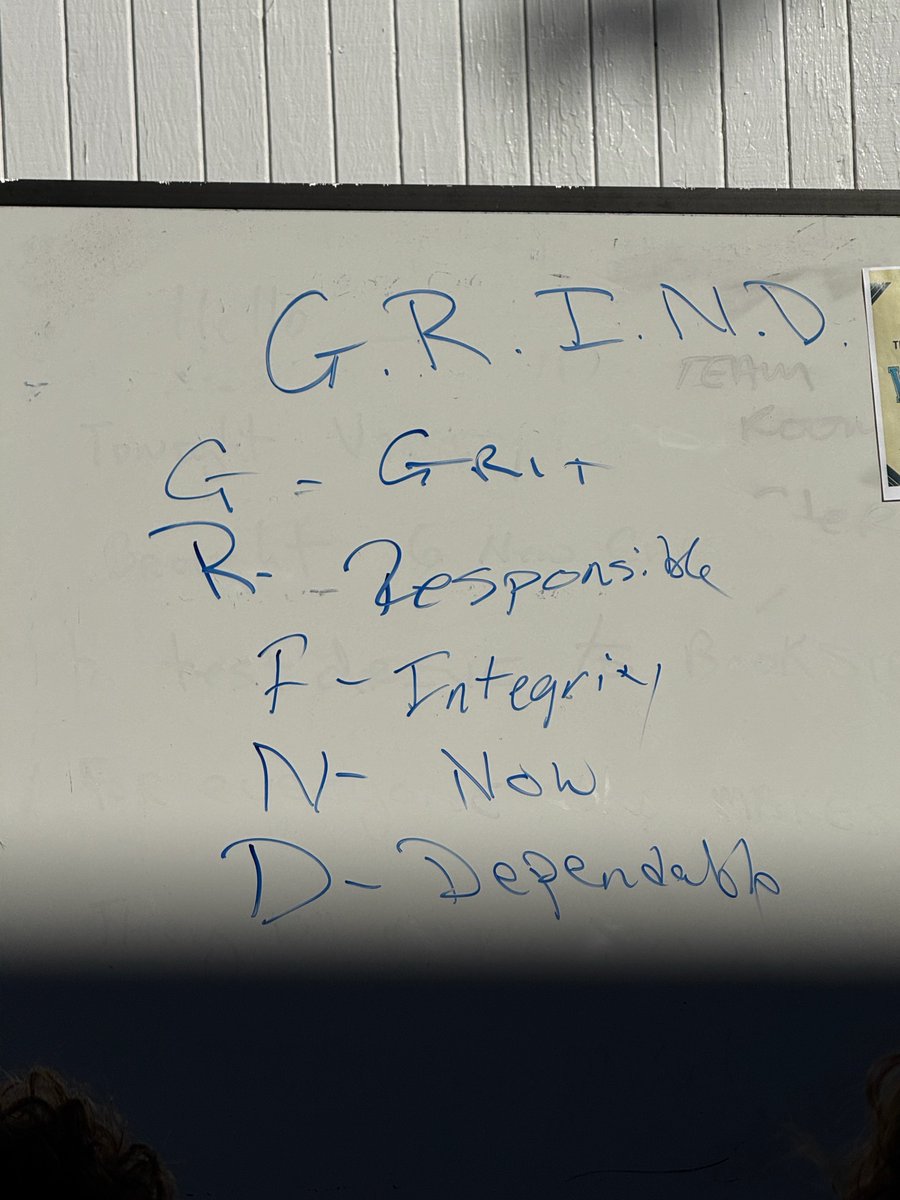 G.R.I.N.D.
TEAM
G = GRIT
R- - Responsible
I - Integrity
N- Now
D- Dependable